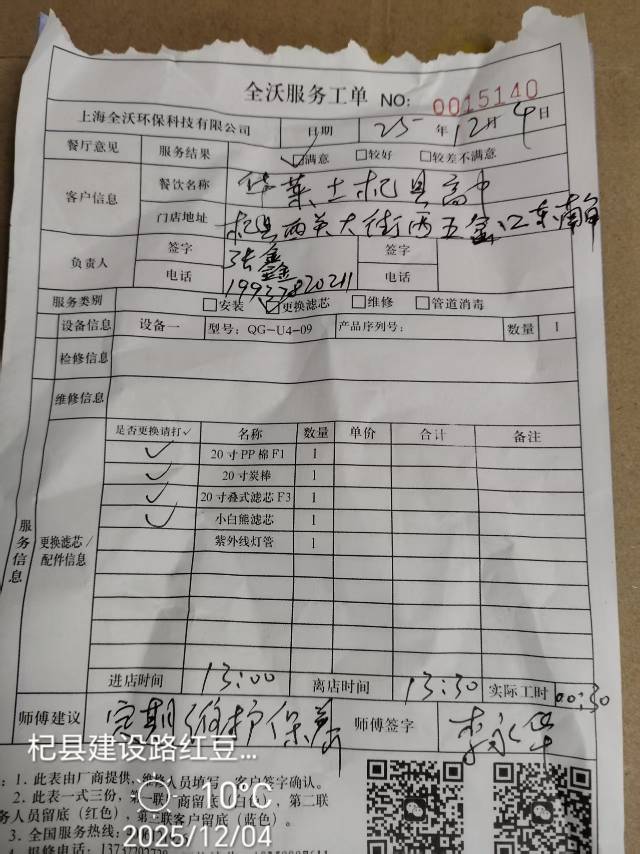 全沃服务工单 NO: 0015140
上海全沃环保科技有限公司 日期 25 年 12 月 4 日
餐厅意见 服务结果 ☑满意 □较好 □较差不满意
客户信息 餐饮名称 华莱士杞县高中
门店地址 杞县西关大街西五金江东
负责人 签字 张鑫鑫 签字
电话 电话
服务类别 □安装 ☑更换滤芯 □维修 □管道消毒
设备信息 设备一 型号: QG-U4-09 产品序列号: 数量 1
检修信息
维修信息
服务信息
更换滤芯/配件信息
是否更换请打✓ 名称 数量 单价 合计 备注
✓ 20寸PP棉F1 1
✓ 20寸炭棒 1
✓ 20寸叠式滤芯F3 1
✓ 小白熊滤芯 1
紫外线灯管 1
进店时间 13:00 离店时间 13:30 实际工时 00:30
师傅建议 定期维护保养 师傅签字 李永华
杞县建设路红豆...
10℃
2025/12/04
: 1、此表由厂商提供、维修人员填写、客户签字确认。
2、此表一式三份，第一联厂商留底（白色），第二联
务人员留底（红色），第三联客户留底（蓝色）。
3、全国服务热线:
报修电话: